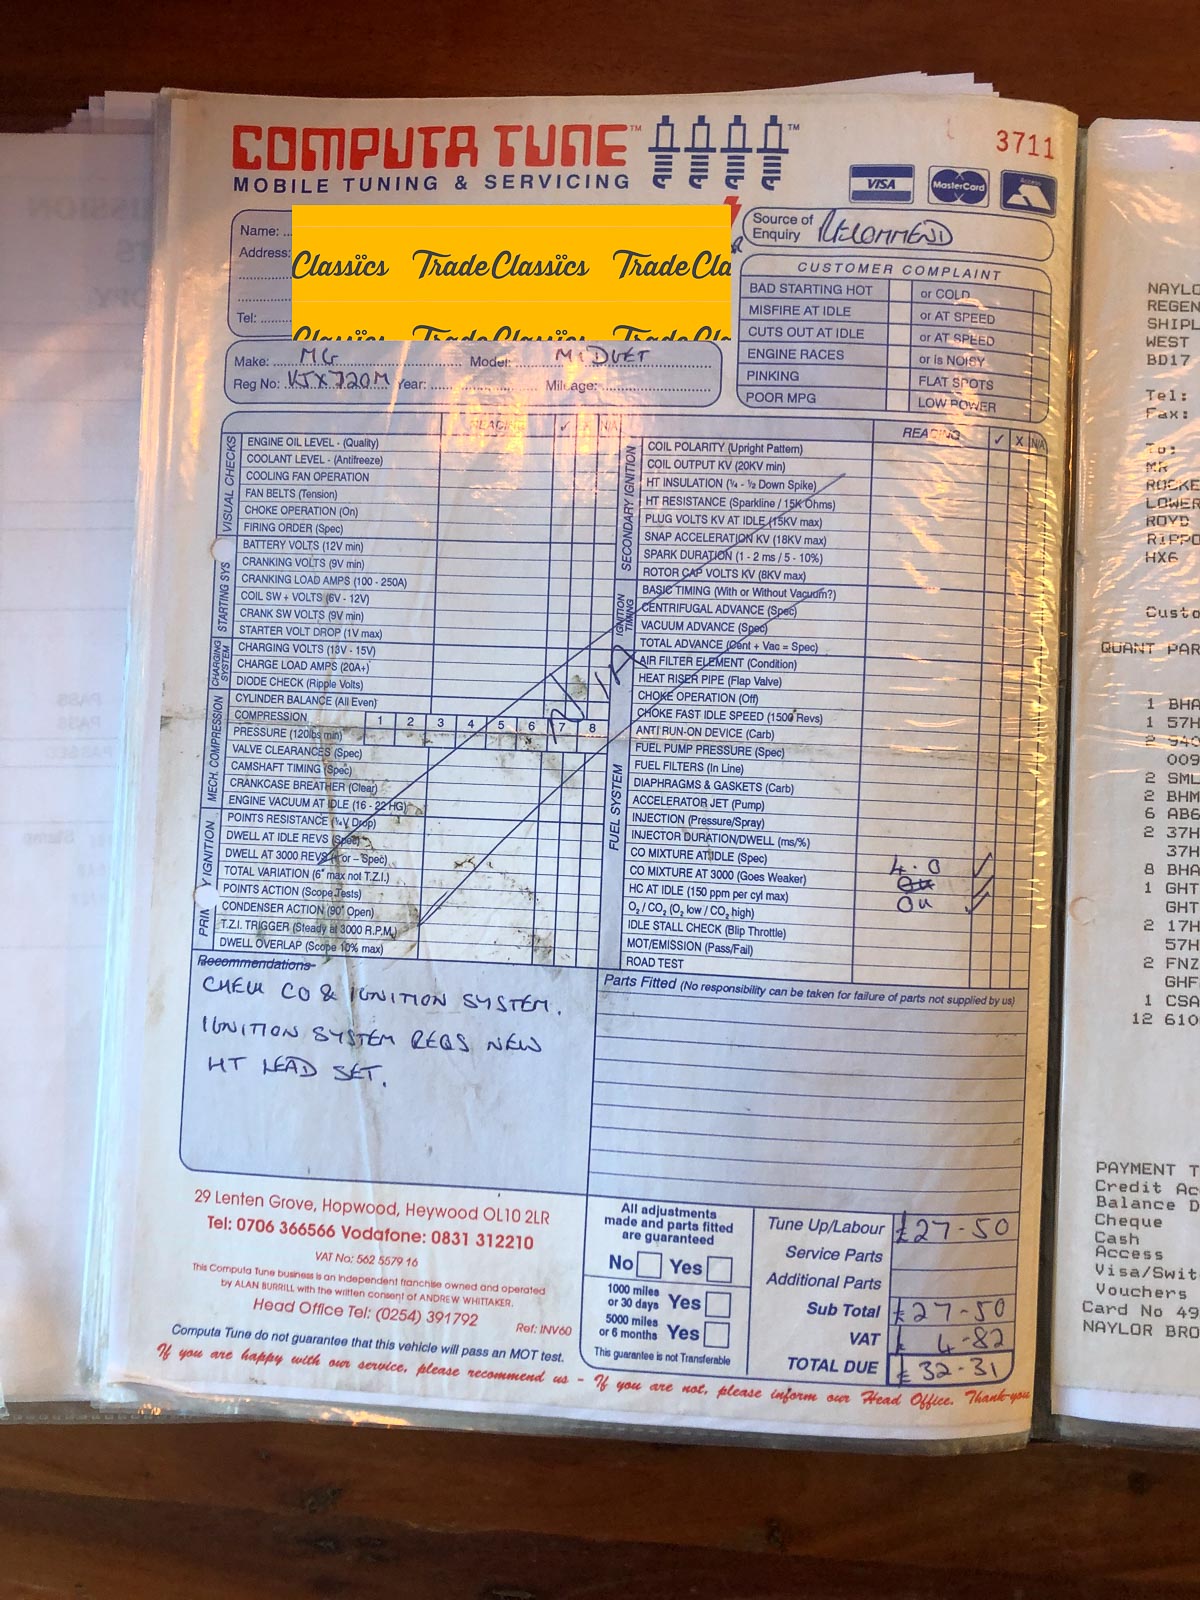 COMPUTA TUNE™ ™
MOBILE TUNING & SERVICING
3711
VISA MasterCard Access
Name: ...
Address:
Tel: ..........
Classics TradeClassics TradeCla
Classics TradeClassics TradeCla
Source of Enquiry RECOMMEND
Make: MG Model: MIDGET
Reg No: VJX 720M Year: Mileage:
CUSTOMER COMPLAINT
BAD STARTING HOT or COLD
MISFIRE AT IDLE or AT SPEED
CUTS OUT AT IDLE or AT SPEED
ENGINE RACES or is NOISY
PINKING FLAT SPOTS
POOR MPG LOW POWER
READING ✓ X N/A
VISUAL CHECKS
ENGINE OIL LEVEL - (Quality)
COOLANT LEVEL - (Antifreeze)
COOLING FAN OPERATION
FAN BELTS (Tension)
CHOKE OPERATION (On)
FIRING ORDER (Spec)
STARTING SYS
BATTERY VOLTS (12V min)
CRANKING VOLTS (9V min)
CRANKING LOAD AMPS (100 - 250A)
COIL SW + VOLTS (6V - 12V)
CRANK SW VOLTS (9V min)
STARTER VOLT DROP (1V max)
CHARGING SYSTEM
CHARGING VOLTS (13V - 15V)
CHARGE LOAD AMPS (20A+)
DIODE CHECK (Ripple Volts)
MECH. COMPRESSION
CYLINDER BALANCE (All Even)
COMPRESSION 1 2 3 4 5 6 7 8
PRESSURE (120lbs min)
VALVE CLEARANCES (Spec)
CAMSHAFT TIMING (Spec)
CRANKCASE BREATHER (Clear)
ENGINE VACUUM AT IDLE (16 - 22 HG)
Y IGNITION
PRIM
POINTS RESISTANCE (¼V Drop)
DWELL AT IDLE REVS (Spec)
DWELL AT 3000 REVS (+ or - Spec)
TOTAL VARIATION (6° max not T.Z.I.)
POINTS ACTION (Scope Tests)
CONDENSER ACTION (90° Open)
T.Z.I. TRIGGER (Steady at 3000 R.P.M.)
DWELL OVERLAP (Scope 10% max)
N/A
READING ✓ X N/A
SECONDARY IGNITION
COIL POLARITY (Upright Pattern)
COIL OUTPUT KV (20KV min)
HT INSULATION (¼ - ½ Down Spike)
HT RESISTANCE (Sparkline / 15K Ohms)
PLUG VOLTS KV AT IDLE (15KV max)
SNAP ACCELERATION KV (18KV max)
SPARK DURATION (1 - 2 ms / 5 - 10%)
ROTOR CAP VOLTS KV (8KV max)
IGNITION TIMING
BASIC TIMING (With or Without Vacuum?)
CENTRIFUGAL ADVANCE (Spec)
VACUUM ADVANCE (Spec)
TOTAL ADVANCE (Cent + Vac = Spec)
FUEL SYSTEM
AIR FILTER ELEMENT (Condition)
HEAT RISER PIPE (Flap Valve)
CHOKE OPERATION (Off)
CHOKE FAST IDLE SPEED (1500 Revs)
ANTI RUN-ON DEVICE (Carb)
FUEL PUMP PRESSURE (Spec)
FUEL FILTERS (In Line)
DIAPHRAGMS & GASKETS (Carb)
ACCELERATOR JET (Pump)
INJECTION (Pressure/Spray)
INJECTOR DURATION/DWELL (ms/%)
CO MIXTURE AT IDLE (Spec) 4.0 ✓
CO MIXTURE AT 3000 (Goes Weaker) ✓
HC AT IDLE (150 ppm per cyl max) ✓
O₂ / CO₂ (O₂ low / CO₂ high)
IDLE STALL CHECK (Blip Throttle)
MOT/EMISSION (Pass/Fail)
ROAD TEST
Recommendations
CHECK CO & IGNITION SYSTEM.
IGNITION SYSTEM REQS NEW
HT LEAD SET.
Parts Fitted (No responsibility can be taken for failure of parts not supplied by us)
29 Lenten Grove, Hopwood, Heywood OL10 2LR
Tel: 0706 366566 Vodafone: 0831 312210
VAT No: 562 5579 16
This Computa Tune business is an independent franchise owned and operated
by ALAN BURRILL with the written consent of ANDREW WHITTAKER.
Head Office Tel: (0254) 391792
Ref: INV60
Computa Tune do not guarantee that this vehicle will pass an MOT test.
If you are happy with our service, please recommend us - If you are not, please inform our Head Office. Thank-you
All adjustments
made and parts fitted
are guaranteed
No Yes
1000 miles or 30 days Yes
5000 miles or 6 months Yes
This guarantee is not Transferable
Tune Up/Labour £27-50
Service Parts
Additional Parts
Sub Total £27-50
VAT £ 4-82
TOTAL DUE £32-31
NAYLO
REGEN
SHIPL
WEST
BD17
Tel:
Fax:
To:
MR
ROCKE
LOWER
ROYD
RIPPO
HX6
Custo
QUANT PAR
1 BHA
1 57H
2 940
009
2 SML
2 BHM
6 AB6
2 37H
37H
8 BHA
1 GHT
GHT
2 17H
57H
2 FNZ
GHF
1 CSA
12 610
PAYMENT T
Credit Ac
Balance D
Cheque
Cash
Access
Visa/Swit
Vouchers
Card No 49
NAYLOR BRO